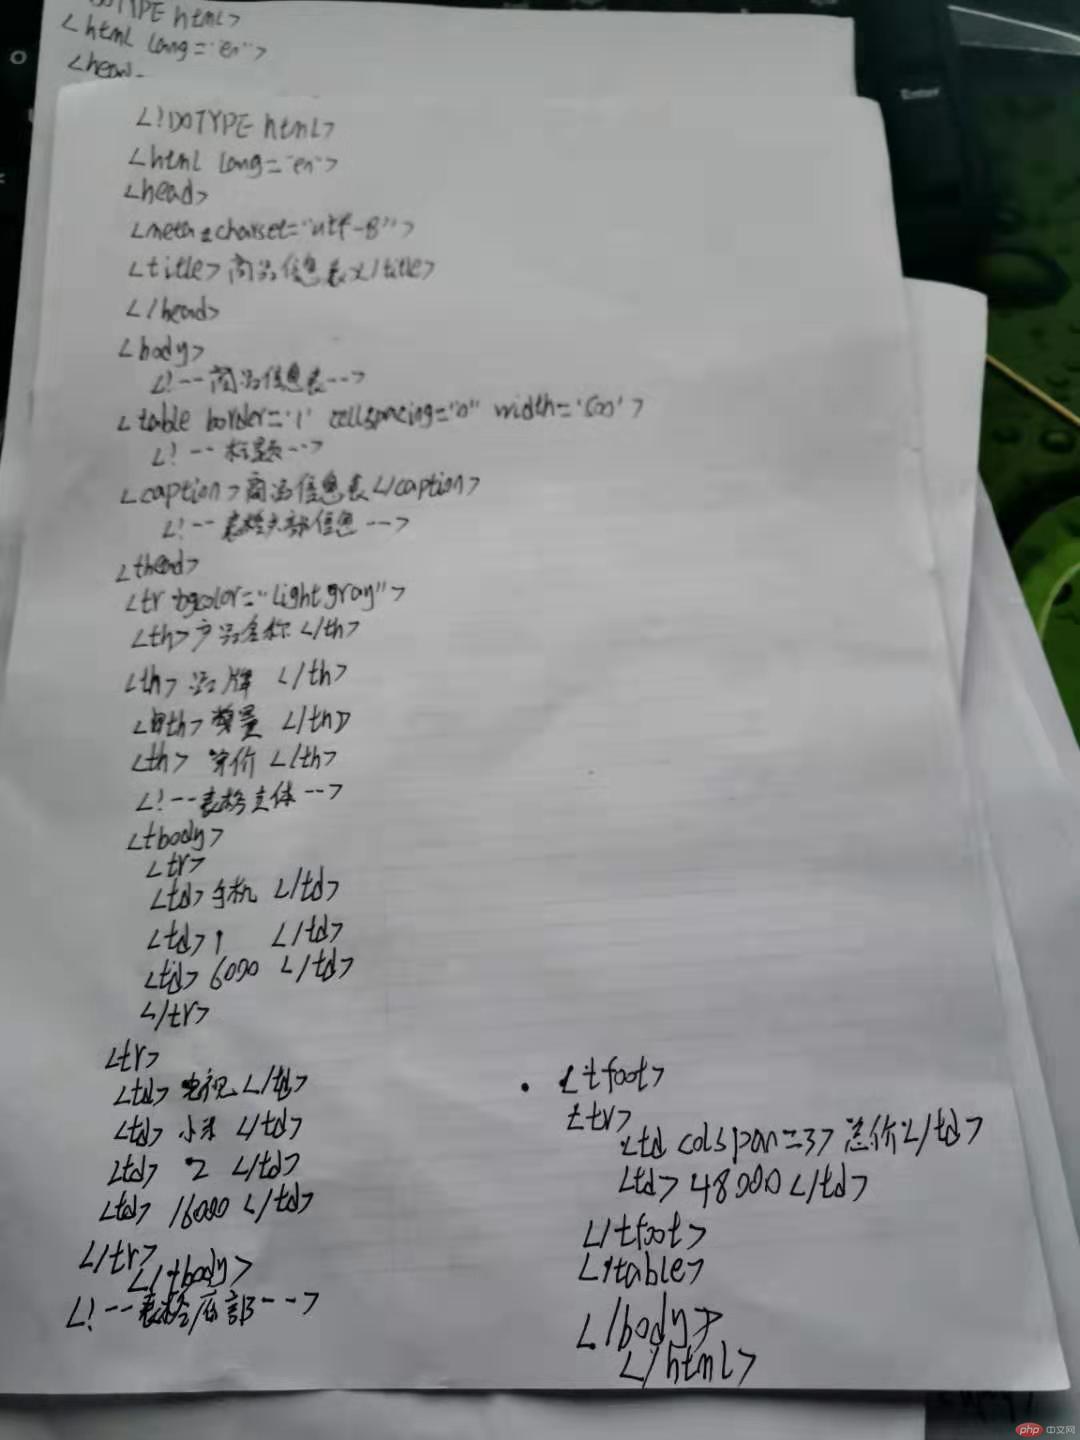 OTYPE html>
<html lang="en">
<head
Enter
<!DOTYPE html>
<html lang="en">
<head>
<meta charset="utf-8">
<title>商品信息表</title>
</head>
<body>
<!--商品信息表-->
<table border='1' cellspacing="0" width='500'>
<!--标题-->
<caption>商品信息表</caption>
<!--表格头部信息-->
<thead>
<tr bgcolor="lightgray">
<th>产品名称</th>
<th>品牌</th>
<th>数量</th>
<th>单价</th>
<!--表格主体-->
<tbody>
<tr>
<td>手机</td>
<td>1</td>
<td>6000</td>
</tr>
<tr>
<td>电视</td>
<td>小米</td>
<td>2</td>
<td>16000</td>
</tr>
</tbody>
<!--表格底部-->
<tfoot>
<tr>
<td colspan=3>总价</td>
<td>48000</td>
</tfoot>
</table>
</body>
</html>
php 中文网